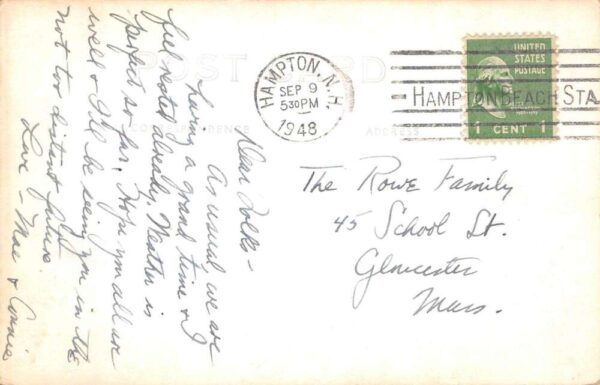 POST CARD
CORRESPONDENCE
ADDRESS
HAMPTON, N.H.
SEP 9
5 30 PM
1948
HAMPTON BEACH STA
UNITED
STATES
POSTAGE
1 CENT 1
Dear Folks—
As usual we are
having a grand time & I
feel rested already. Weather is
perfect so far. Hope you all are
well & I'll be seeing you in the
not too distant future.
Love – Mae & Connie
The Rowe Family
45 School St.
Gloucester
Mass.